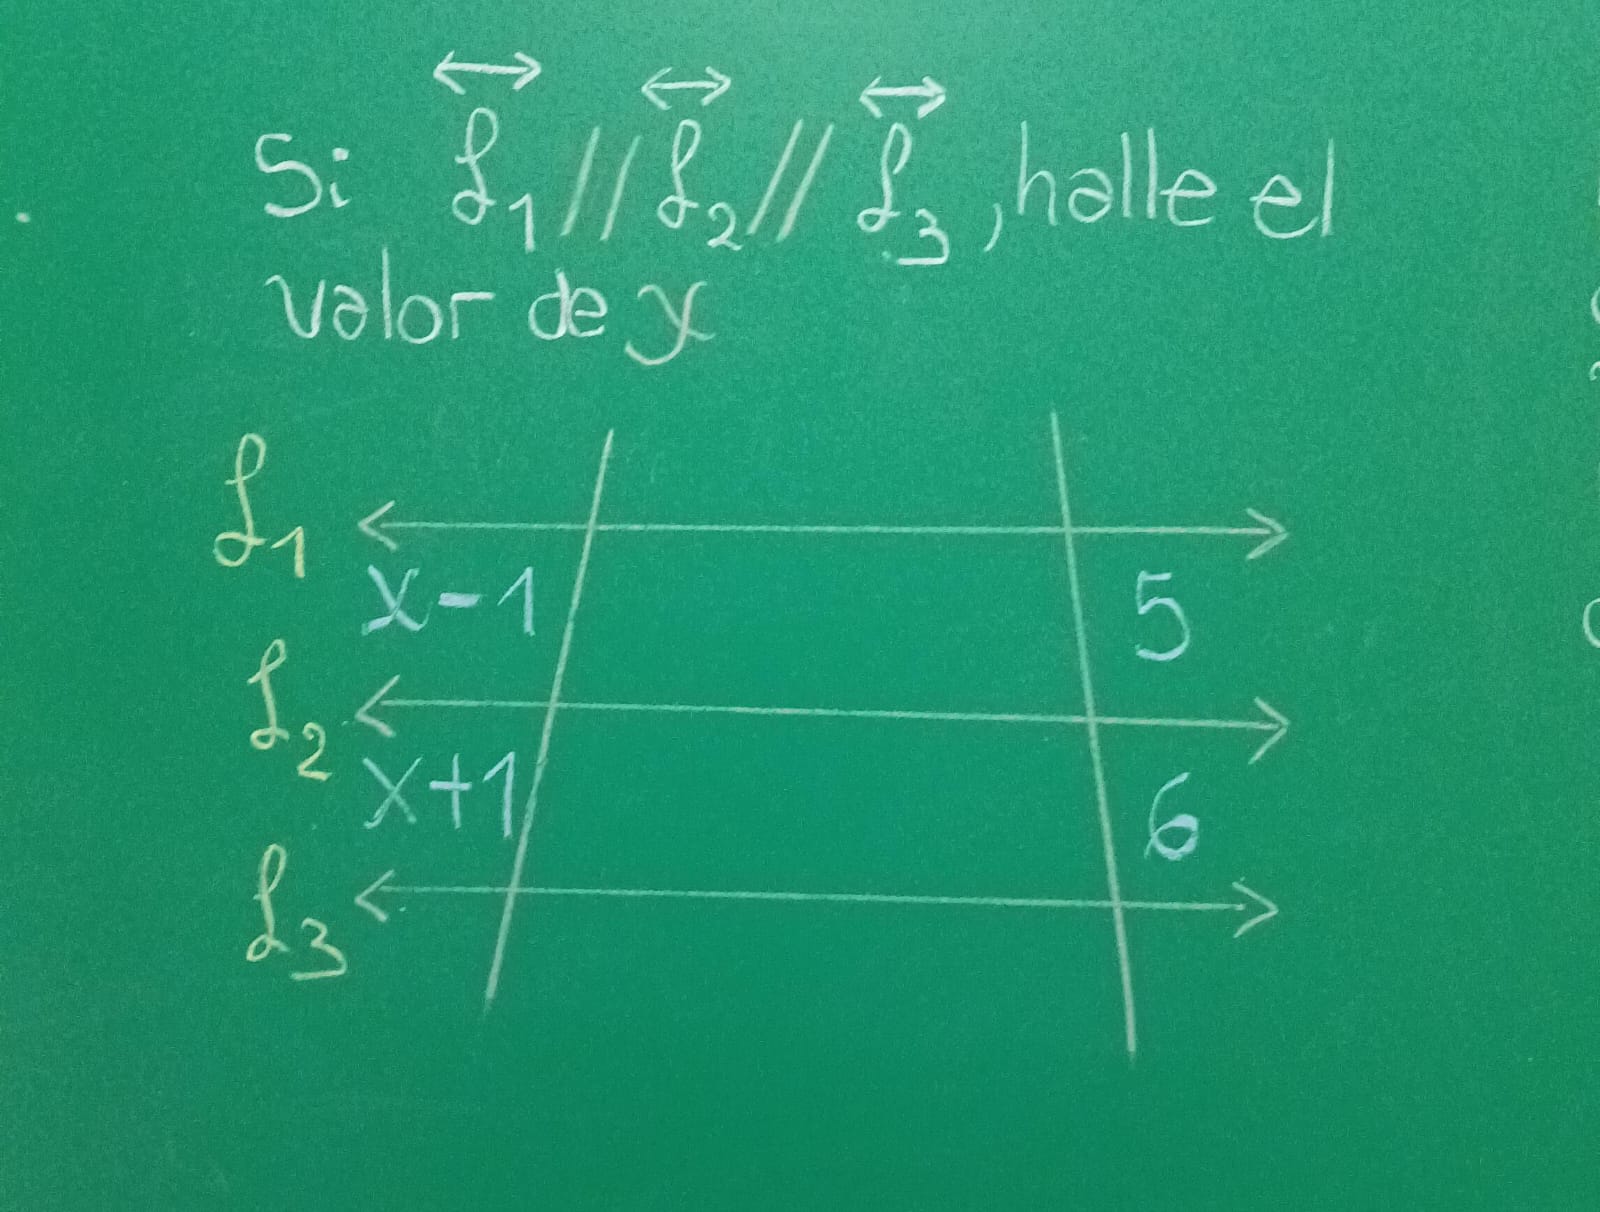 Si ℒ₁ // ℒ₂ // ℒ₃, halle el
valor de x
ℒ₁
x-1 5
ℒ₂
x+1 6
ℒ₃